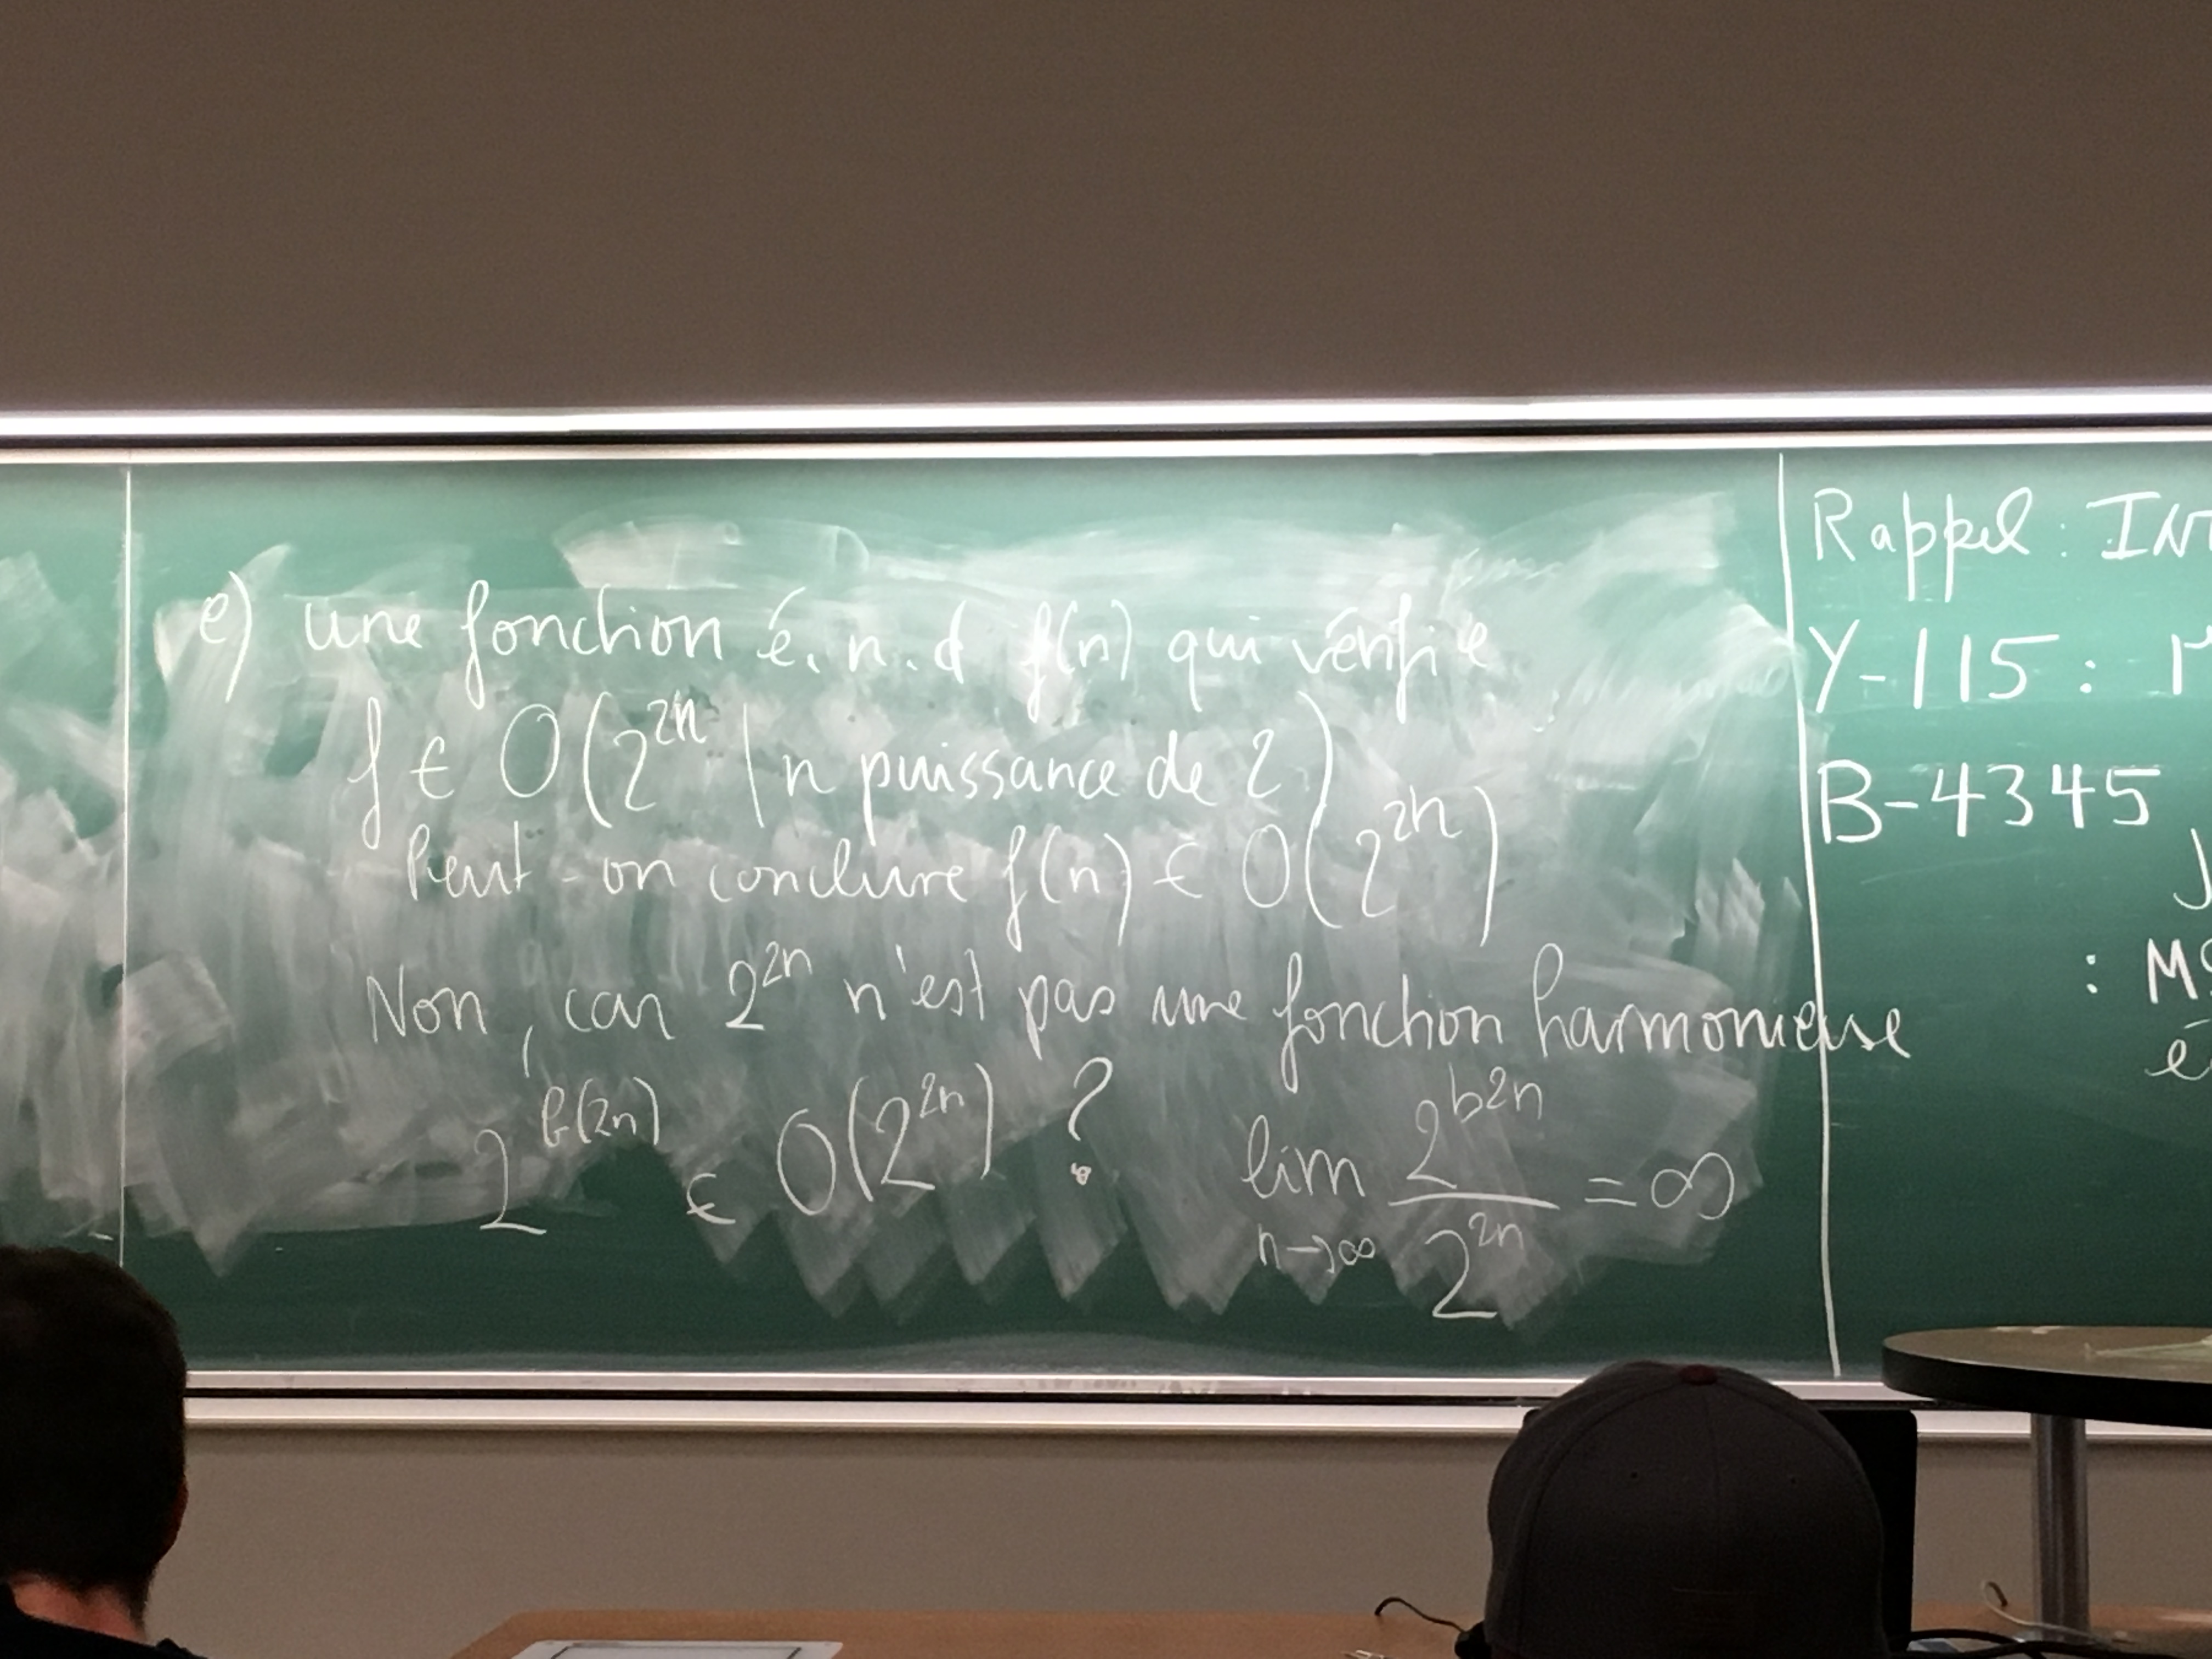 e) une fonction é. n. d f(n) qui vérifie
f ∈ O(2^{2n} | n puissance de 2)
Peut-on conclure f(n) ∈ O(2^{2n})
Non, car 2^{2n} n'est pas une fonction harmonieuse
2^{b(2n)} ∈ O(2^{2n}) ? lim_{n→∞} 2^{b2n} / 2^{2n} = ∞
Rappel : IN
Y-115 :
B-4345
: M
é